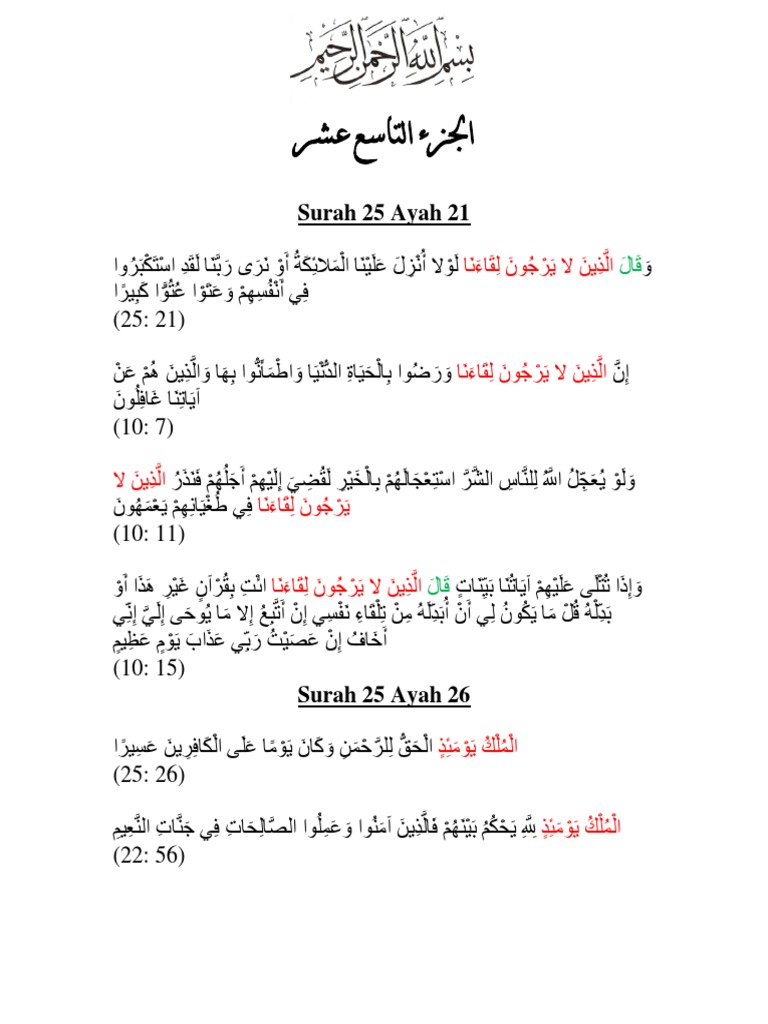 بِسْمِ اللَّهِ الرَّحْمَنِ الرَّحِيمِ
الجزء التاسع عشر
Surah 25 Ayah 21
وَقَالَ الَّذِينَ لا يَرْجُونَ لِقَاءَنَا لَوْلا أُنْزِلَ عَلَيْنَا الْمَلائِكَةُ أَوْ نَرَى رَبَّنَا لَقَدِ اسْتَكْبَرُوا
فِي أَنْفُسِهِمْ وَعَتَوْا عُتُوًّا كَبِيرًا
(25: 21)
إِنَّ الَّذِينَ لا يَرْجُونَ لِقَاءَنَا وَرَضُوا بِالْحَيَاةِ الدُّنْيَا وَاطْمَأَنُّوا بِهَا وَالَّذِينَ هُمْ عَنْ
آَيَاتِنَا غَافِلُونَ
(10: 7)
وَلَوْ يُعَجِّلُ اللَّهُ لِلنَّاسِ الشَّرَّ اسْتِعْجَالَهُمْ بِالْخَيْرِ لَقُضِيَ إِلَيْهِمْ أَجَلُهُمْ فَنَذَرُ الَّذِينَ لا
يَرْجُونَ لِقَاءَنَا فِي طُغْيَانِهِمْ يَعْمَهُونَ
(10: 11)
وَإِذَا تُتْلَى عَلَيْهِمْ آَيَاتُنَا بَيِّنَاتٍ قَالَ الَّذِينَ لا يَرْجُونَ لِقَاءَنَا ائْتِ بِقُرْآَنٍ غَيْرِ هَذَا أَوْ
بَدِّلْهُ قُلْ مَا يَكُونُ لِي أَنْ أُبَدِّلَهُ مِنْ تِلْقَاءِ نَفْسِي إِنْ أَتَّبِعُ إِلا مَا يُوحَى إِلَيَّ إِنِّي
أَخَافُ إِنْ عَصَيْتُ رَبِّي عَذَابَ يَوْمٍ عَظِيمٍ
(10: 15)
Surah 25 Ayah 26
الْمُلْكُ يَوْمَئِذٍ الْحَقُّ لِلرَّحْمَنِ وَكَانَ يَوْمًا عَلَى الْكَافِرِينَ عَسِيرًا
(25: 26)
الْمُلْكُ يَوْمَئِذٍ لِلَّهِ يَحْكُمُ بَيْنَهُمْ فَالَّذِينَ آَمَنُوا وَعَمِلُوا الصَّالِحَاتِ فِي جَنَّاتِ النَّعِيمِ
(22: 56)